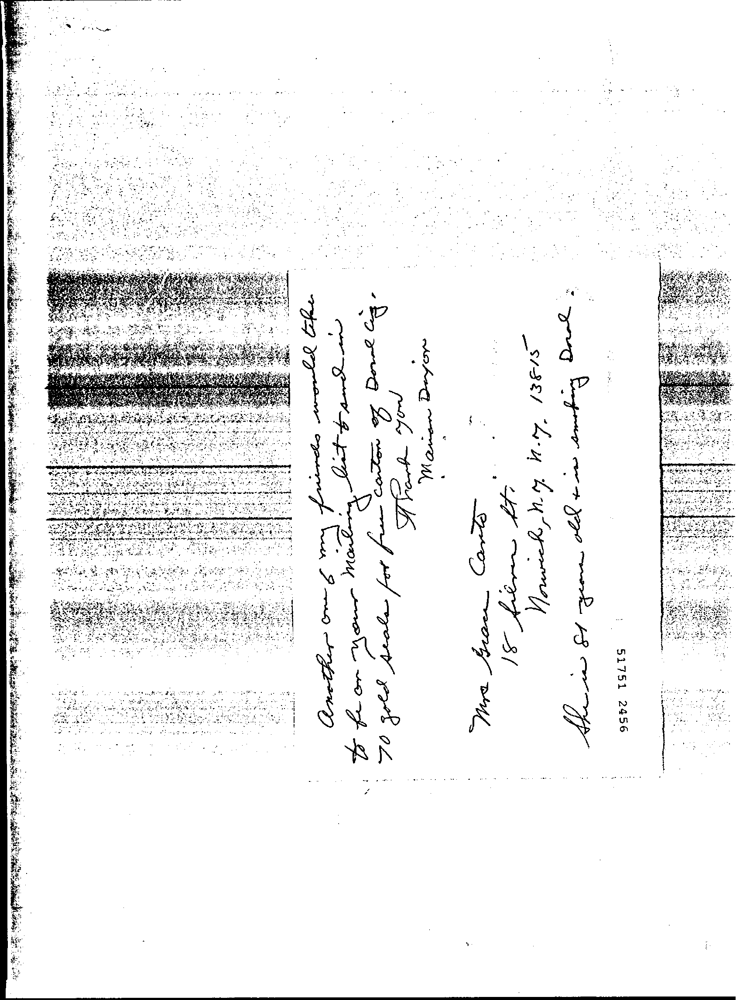 Another one of my friends would like
to be on your Mailing list to send in
70 gold seals for free carton of Doral Cig.
Thank you
Marion Dixon
Mrs Grace
18 Silver St.
Norwich, N.Y. N.Y. 13815
She is 81 years old & is smoking Doral.
51751 2456